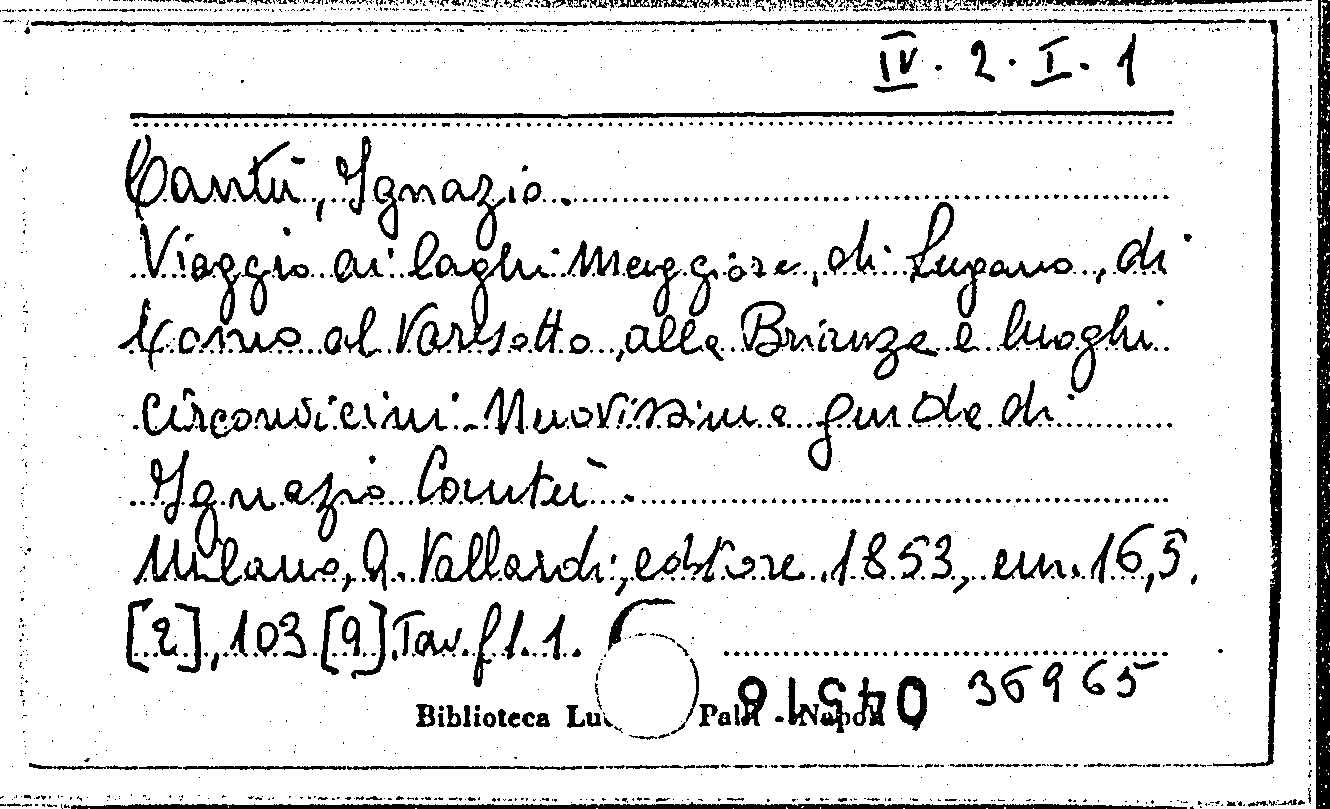 IV. 2. I. 1
Cantù, Ignazio.
Viaggio ai laghi Maggiore, di Lugano, di
Como al Varesotto, alla Brianza e luoghi
circonvicini. Nuovissima guida di
Ignazio Cantù.
Milano, A. Vallardi, editore, 1853, cm. 16,5.
[2], 103 [9]. Tav. f.t. 1.
36965
Biblioteca Napoli